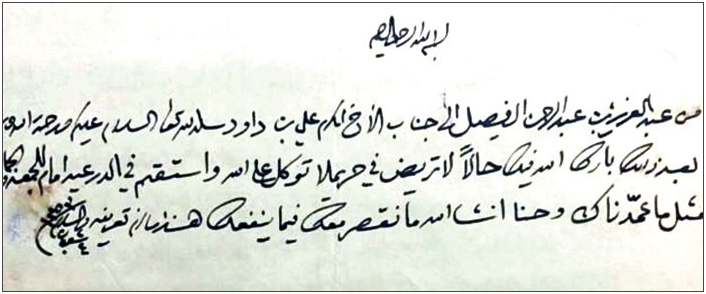 بسم الله الرحمن الرحيم
من عبدالعزيز بن عبدالرحمن الفيصل الى جناب الأخ المكرم علي بن داود سلمه الله تعالى السلام عليكم ورحمة الله
بعد ذلك بارك الله فيك حالاً لا تريض في حريملا توكل على الله واستقم في الدرعيه امام للجمعة
مثل ما عمّدناك وحنا انشا الله ما نقصر معك فيما ينفعك هذا ما لزم تعريفه والسلام